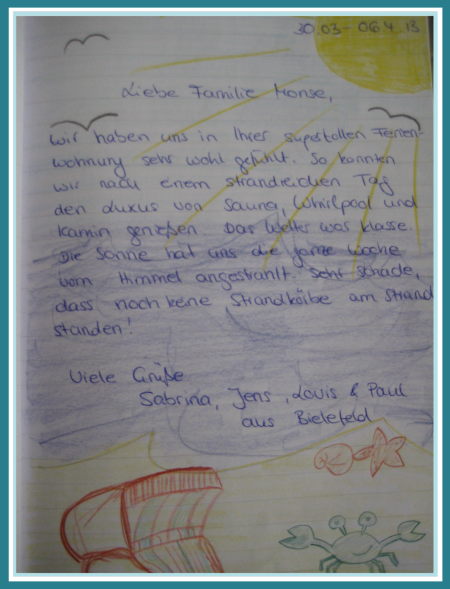 30.03 - 06.4.13
Liebe Familie Monse,
Wir haben uns in Ihrer supertollen Ferien-
wohnung sehr wohl gefühlt. So konnten
wir nach einem strandreichen Tag
den Luxus von Sauna, Whirlpool und
Kamin genießen. Das Wetter war klasse.
Die Sonne hat uns die ganze Woche
vom Himmel angestrahlt. Sehr schade,
dass noch keine Strandkörbe am Strand
standen!
Viele Grüße
Sabrina, Jens, Louis & Paul
aus Bielefeld